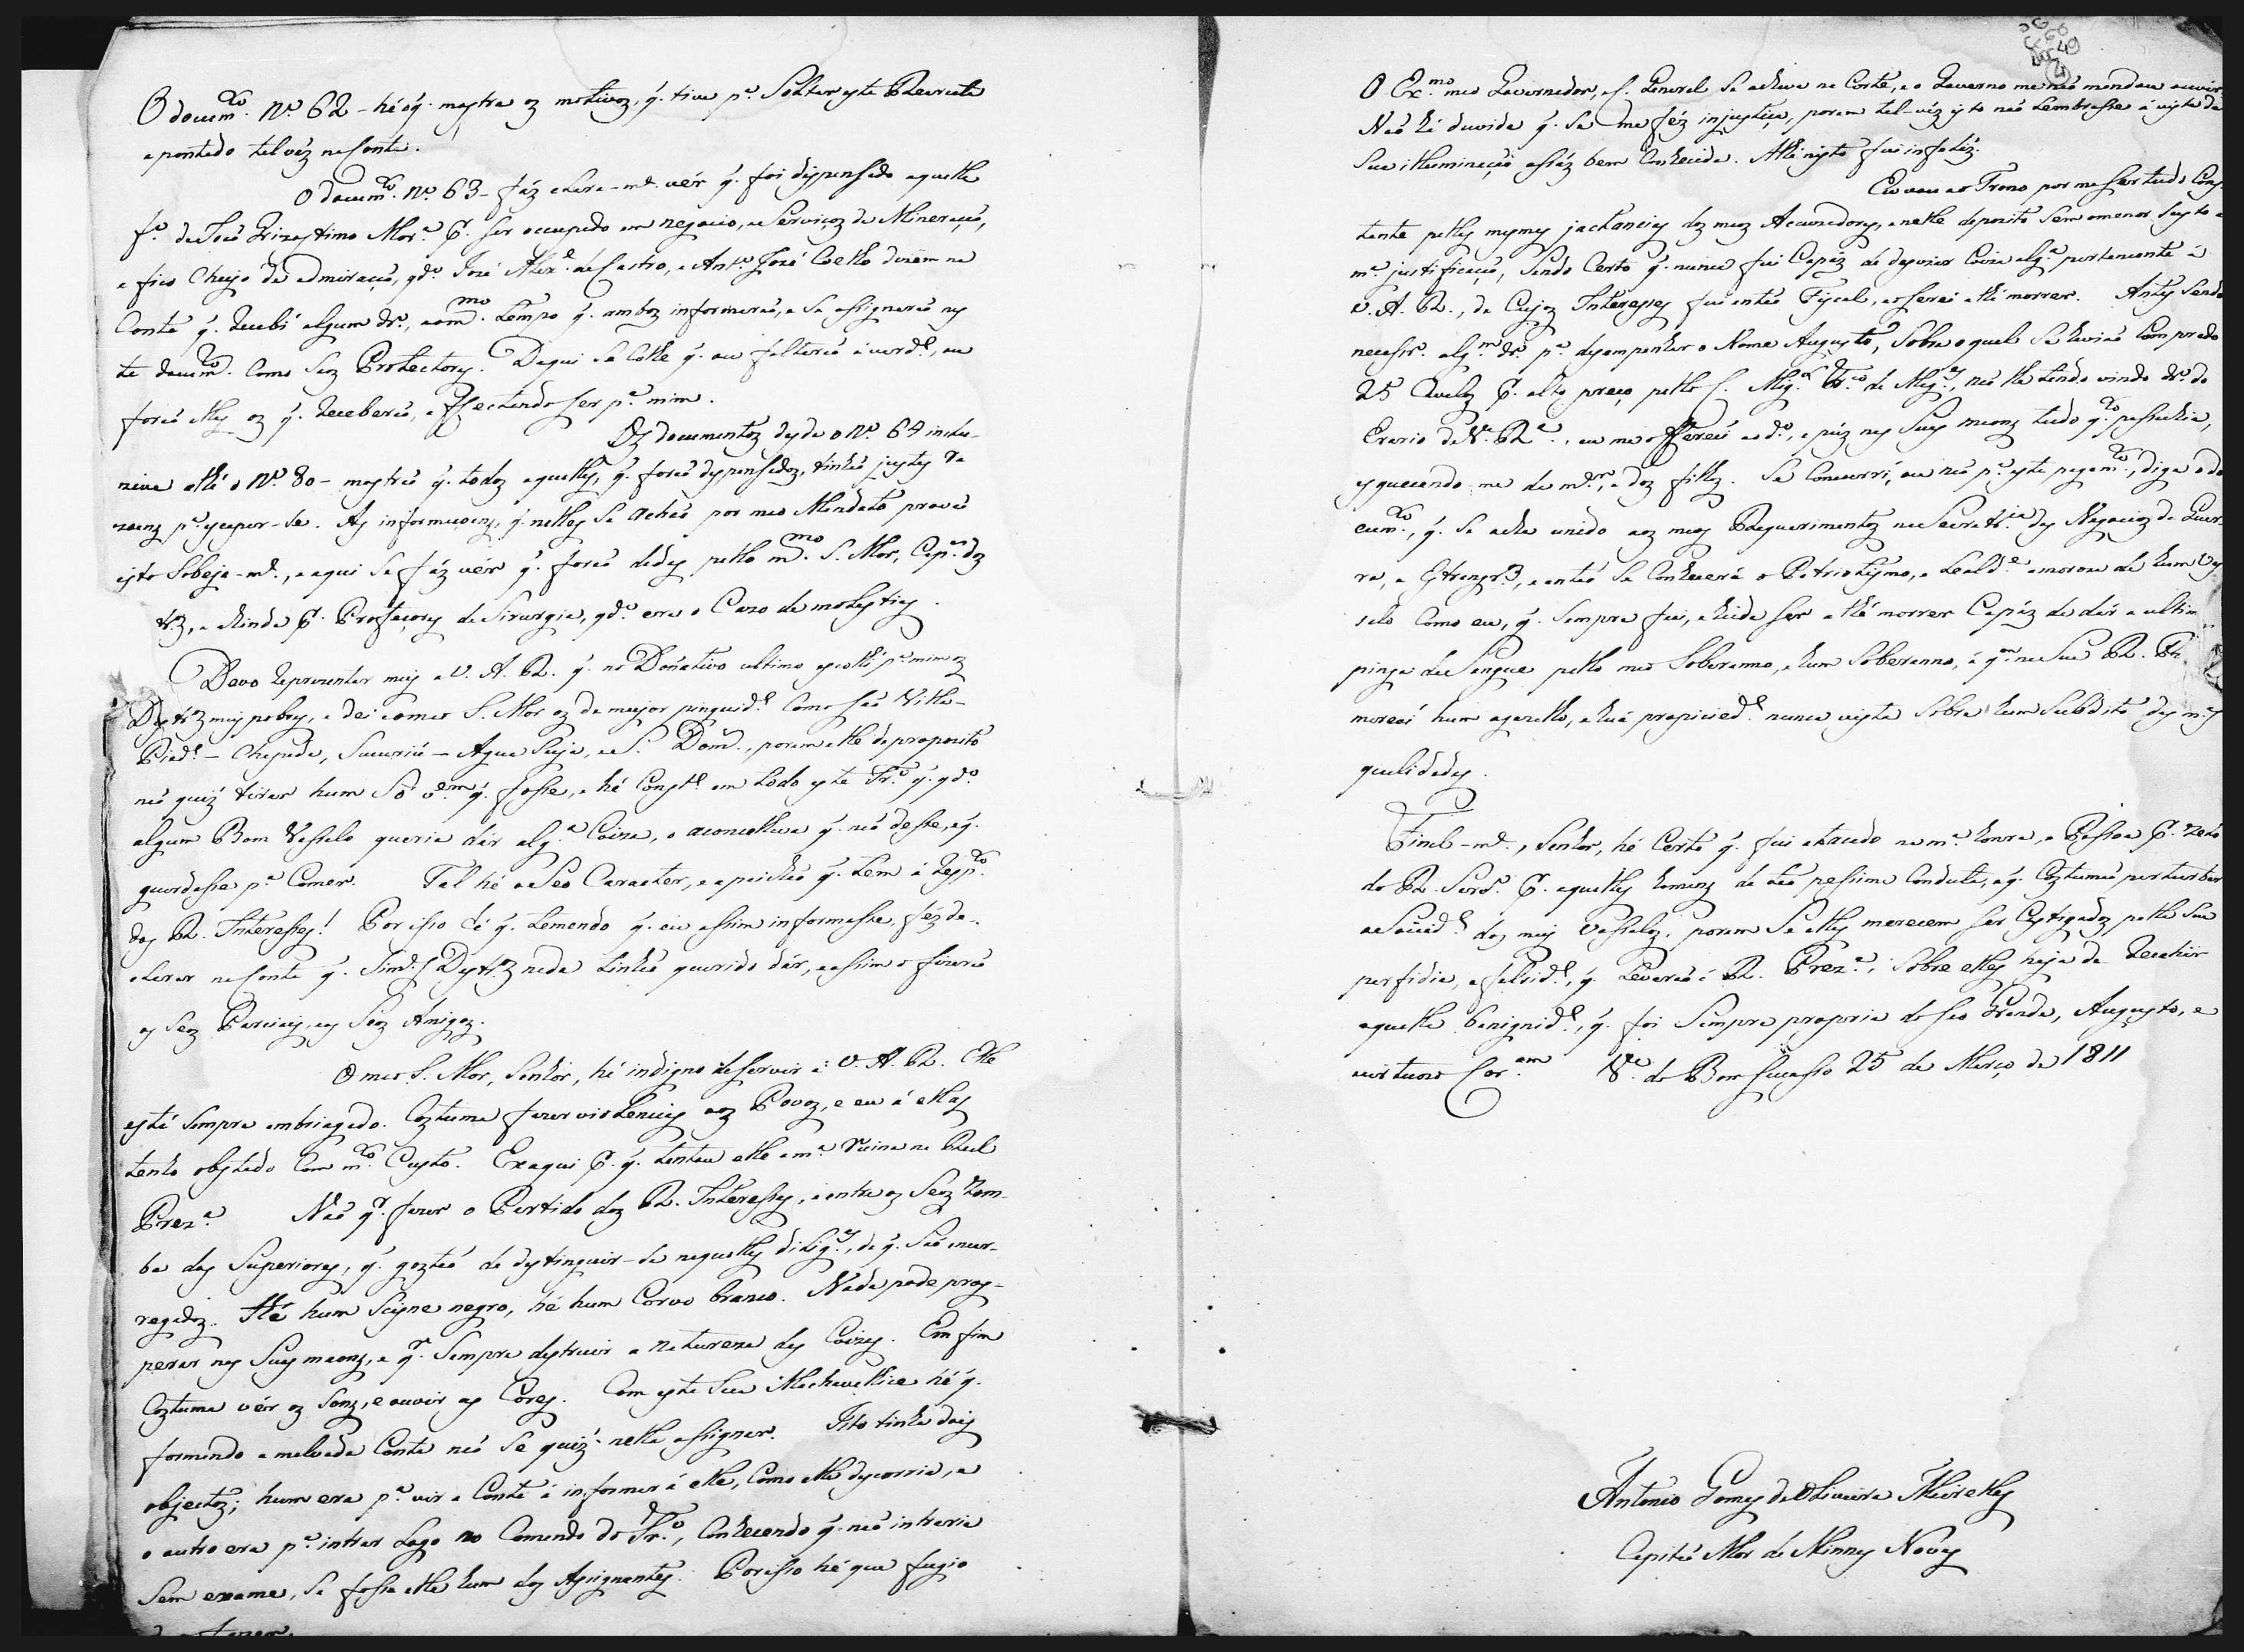 O docum.to N.o 62 - hé o q. mostra oz motivoz, q. tive p.a Soltar este Recruta
apontado talvéz na Conta.
O docum.to N.o 63 - fáz clara-m.te vér q. foi dispensado aquelle
f.o de João Grizostimo Mor.a P. ser occupado em negocio, e Serviçoz de Mineração,
e fico Cheyo de admiração, q.do José Alex.e de Castro, e Ant.o José Coelho dizem na
Conta q. Recebi algum dr.o, ao m.mo tempo q. amboz informarão, e Se assignarão nes
te docum.to Como Seoz Protectores. Daqui Se Colhe q. ou faltarão á verd.e, ou
forão elles oz q. Receberão, affectando ser p.a mim.
Os documentoz desde o N.o 64 inclu-
zive athé o N.o 80 - mostrão q. todoz aquelles, q. forão dispensadoz, tinhão justas Ra
zoenz p.a escapar-se. As informaçoenz, q. nelles Se achão por meo Mandato provão
isto Sobeja-m.te, e aqui Se fáz vér q. forão dadas pello m.mo S. Mor, Cap.es doz
tr.z, e ainda P. Professores de Sirurgia, q.do era o Cazo de molestias.
Devo Representar mais a V. A. R. q. no Donativo ultimo escolhi p.a mim oz
Destr.z mais pobres, e dei ao meo S. Mor oz de mayor pinguid.e Como São Villa-
Pied.e - Chapada, Sucuriú - Agua Suja, e S. Dom.os, porem elle de proposito
não quiz tirar hum Só v.em q. fosse, e hé Const.e em todo este Tr.o q. q.do
algum Bom Vassalo queria dár alg.a Coiza, o aconcelhava q. não desse, e q.
guardasse p.a Comer. Tal hé o Seo Caracter, e a paixão q. tem á Resp.to
dos R. Interesses! Por isso hé q. temendo q. eu assim informasse, féz de-
clarar na Conta q. Sim.es Destr.z nada tinhão querido dár, e assim o fizerão
os Seoz Parciais, e os Seoz Amigoz.
O meo S. Mor, Senhor, hé indigno de servir á V. A. R. Elle
está Sempre embriagado. Coztuma fazer violencias aoz Povoz, e eu á ellas
tenho obstado Com m.to Custo. Ex aqui P. q. tentou elle a m.a Ruina na Real
Prez.a Não q.r fazer o Partido doz R. Interesses, e entre oz Seoz zom-
ba dos Superiores, q. goztão de destinguir-se naquellas dilig.as, de q. São encar-
regadoz. Hé hum Scisne negro, hé hum Corvo branco. Nada pode pros-
perar nas Suas maonz, e q.r Sempre destruir a natureza das Coizas. Em fim
Coztuma vér oz Sonz, e ouvir as Cores. Com esta Sua Machavellice hé q.
formando a malvada Conta não Se quiz nella assignar. Isto tinha dois
objectoz; hum era p.a vir a Conta á informar á elle, Como elle descorria, e
o outro era p.a intrar Logo no Comando do Tr.o, Conhecendo q. não intraria
Sem exame, Se fosse elle hum doz Assignantes. Por isso hé que fugio
de o fazer.
O Ex.mo meo Governador, e S. General Se achava na Corte, e o Governo me não mandou ouvir
Não há duvida q. Se me féz injustiça, porem tal-véz isto não Lembrasse á vista da
Sua illuminação assáz bem Conhecida. Athé nisto fui infeliz.
Eu vou ao Trono por me ser tudo Cons-
tante pellas mesmas jactancias doz meoz Accuzadores, e nelle deposito Sem o menor Susto a
m.a justificação, Sendo Certo q. nunca fui Capáz de desviar Coiza alg.a pertencente á
V. A. R., de Cujoz Interesses fui então Fiscal, e o serei athé morrer. Antes Sendo
necessr.o alg.m dr.o p.a desempenhar o Nome Augusto, Sobre o qual Se havião Comprado
25 Cavaloz P. alto preço pello C. Mig.l Fr.co de Mag.es, não lhe tendo vindo dr.o do
Erario de V.a R.a, eu me offereci ao d.o, e púz nas Suas maonz tudo q.to possuhia,
esquecendo-me da m.er, e doz filhoz. Se Concurrí, ou não p.a este pagam.to, diga o do
cum.to, q. Se acha unido aoz meos Requerimentoz na Secret.ria dos Negocioz da Guer-
ra, e Estrangr.z, e então Se Conhecerá o Patriotismo, e Leald.e amoroza de hum Vas
salo Como eu, q. Sempre fui, e heide ser athé morrer Capáz de dár a ultima
pinga de Sangue pello meo Soberanno, e hum Soberanno, á q.m na Sua R.
mereci hum agazalho, e huã propried.e nunca vista Sobre hum Subdito das m.as
qualidades.
Final-m.te, Senhor, hé Certo q. fui atacado na m.a honra, e Pessoa P. zelo
do R. Serv.o P. aquelles homenz de tão pessima Conduta, e q. Coztumão perturbar
a Socied.e doz mais Vassaloz, porem Se elles merecem ser Castigadoz pella Sua
perfidia, e falsid.e, q. Levarão á R. Prez.a, Sobre elles haja de Recahir
aquella benignid.e, q. foi Sempre propria do Seo Grande, Augusto, e
virtuozo Cor.am V.a do Bom Sucesso 25 de Março de 1811
Antonio Gomes de Oliveira Meirelles
Capitão Mor de Minnas Novas